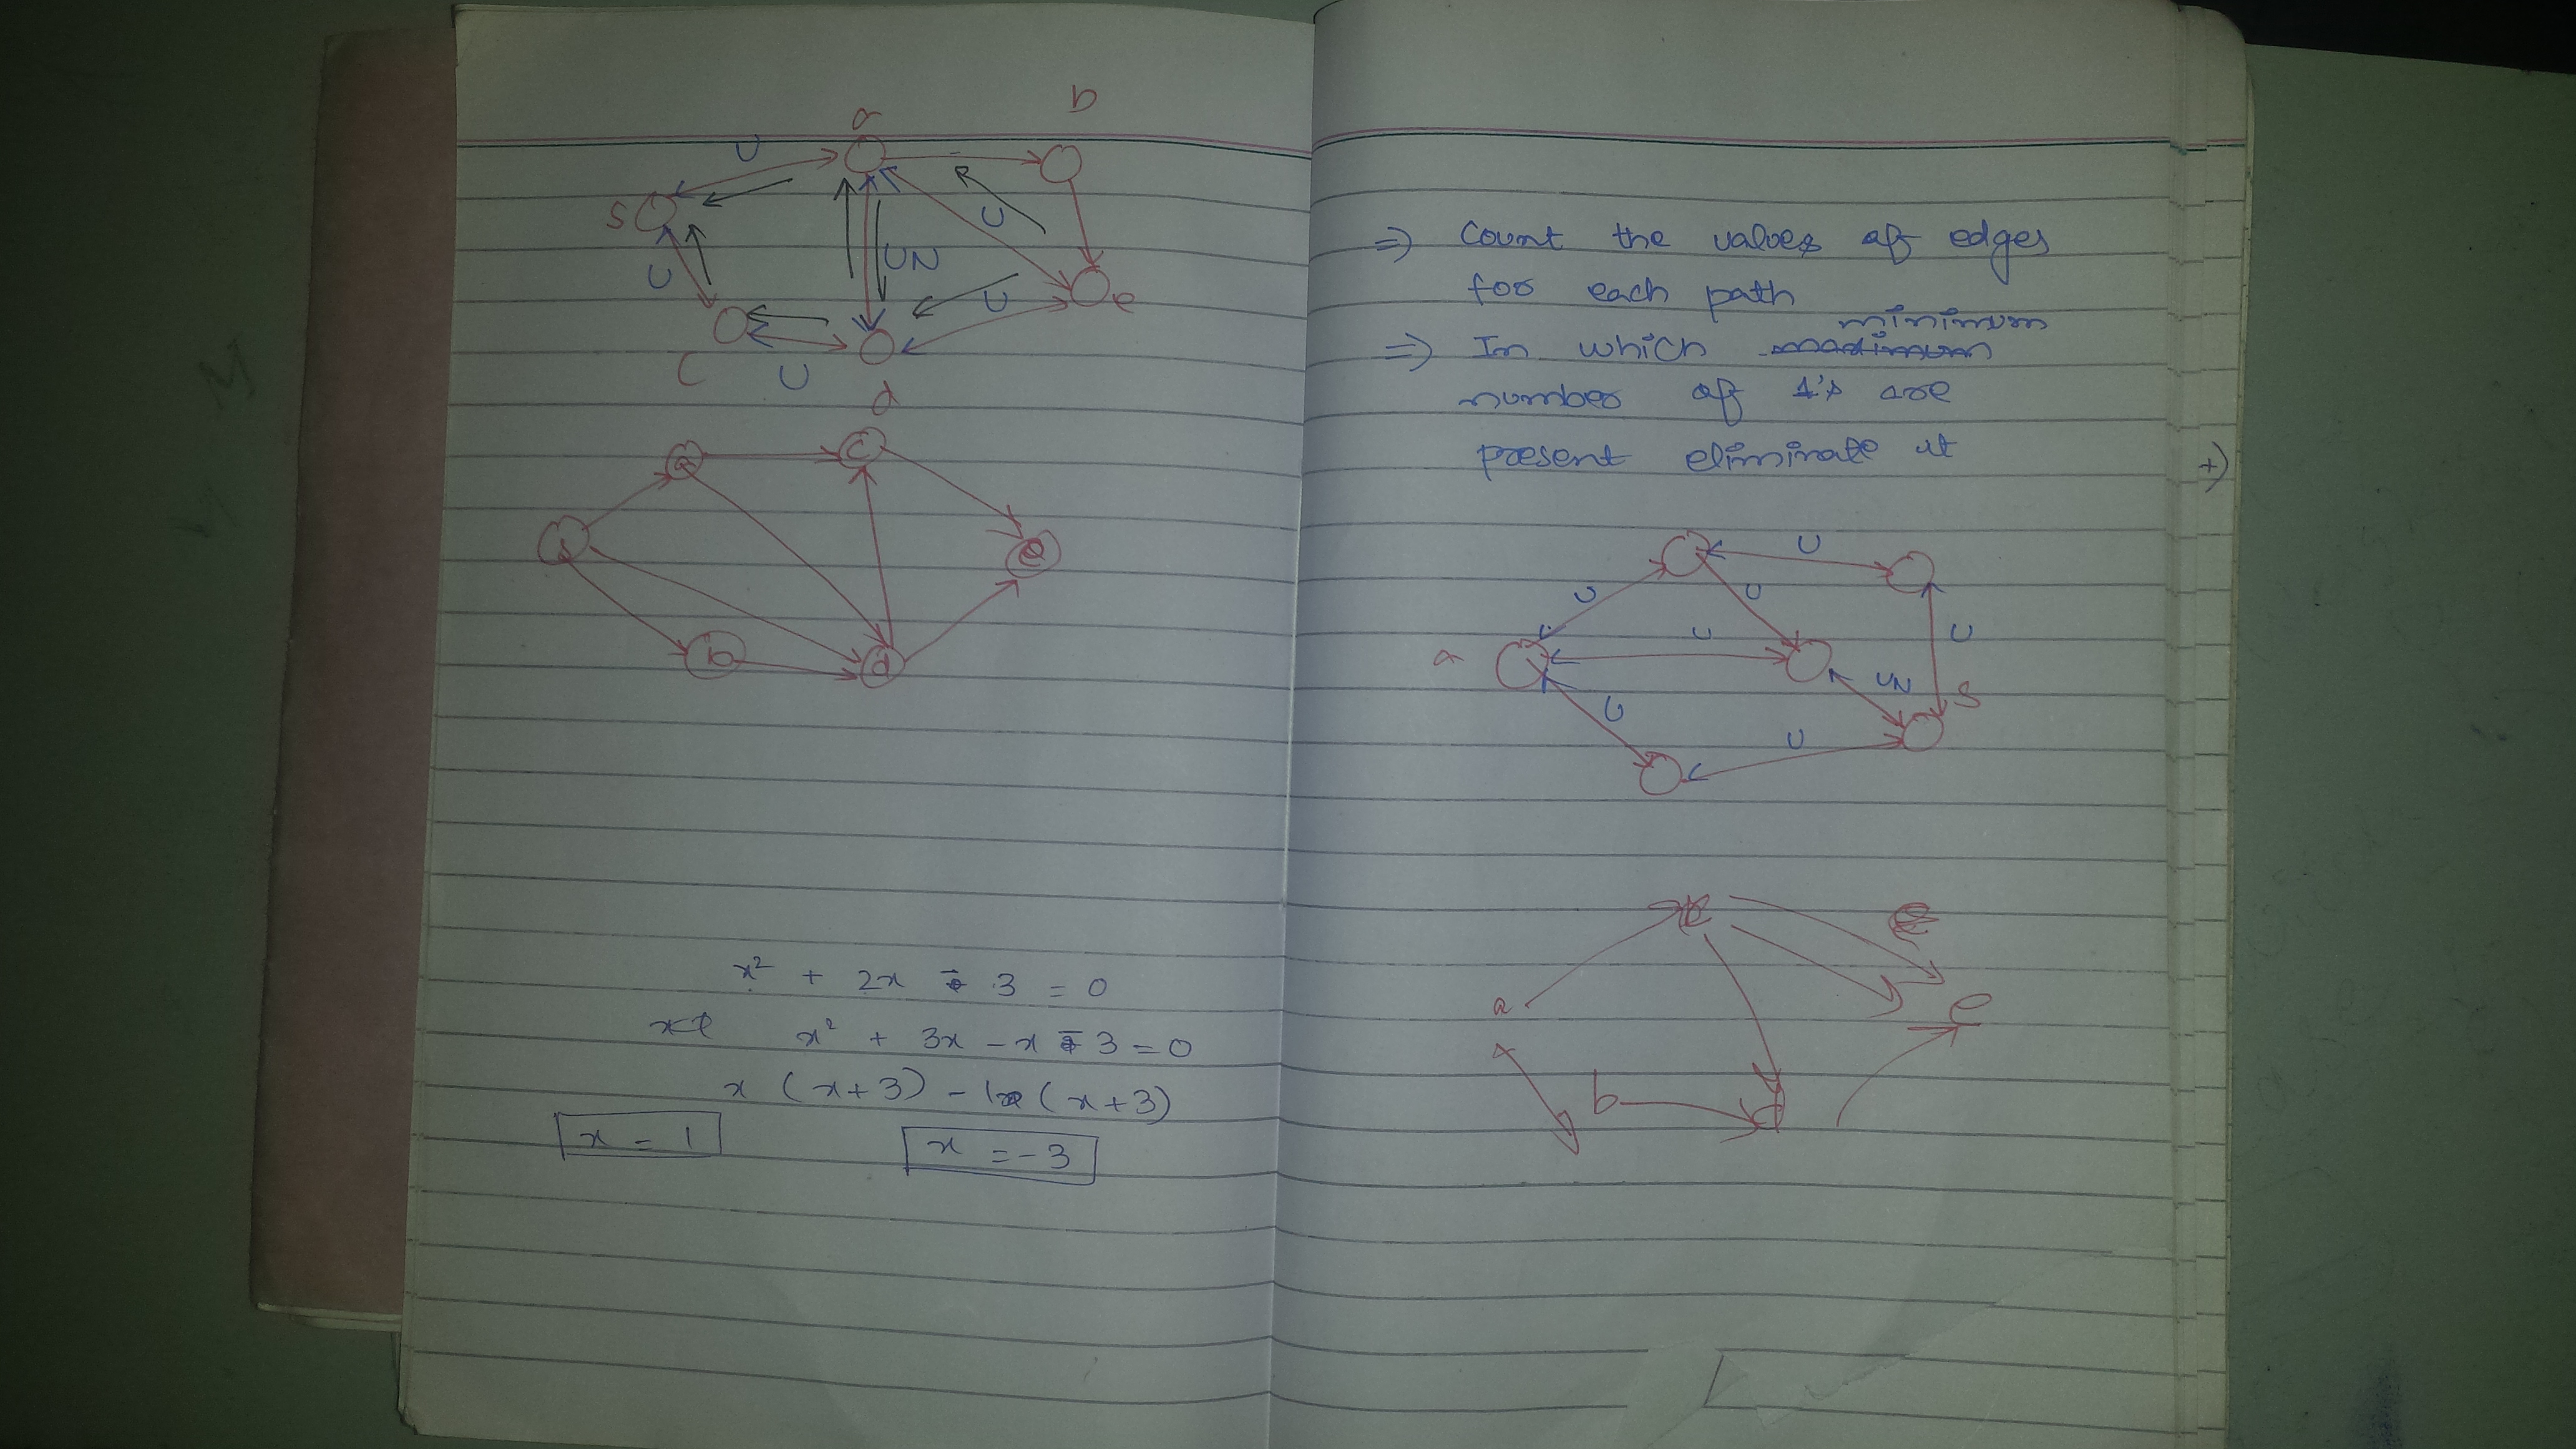 a
b
U
S
R
U
UN
U
e
U
C
U
d
a
c
s
e
b
d
x² + 2x - 3 = 0
x² + 3x - x - 3 = 0
x (x+3) - 1 (x+3)
x = 1
x = -3
=) Count the values of edges
for each path
minimum
=) In which
number of 1's are
present eliminate it
+)
U
U
U
U
U
a
UN
S
U
U
a
e
b
d